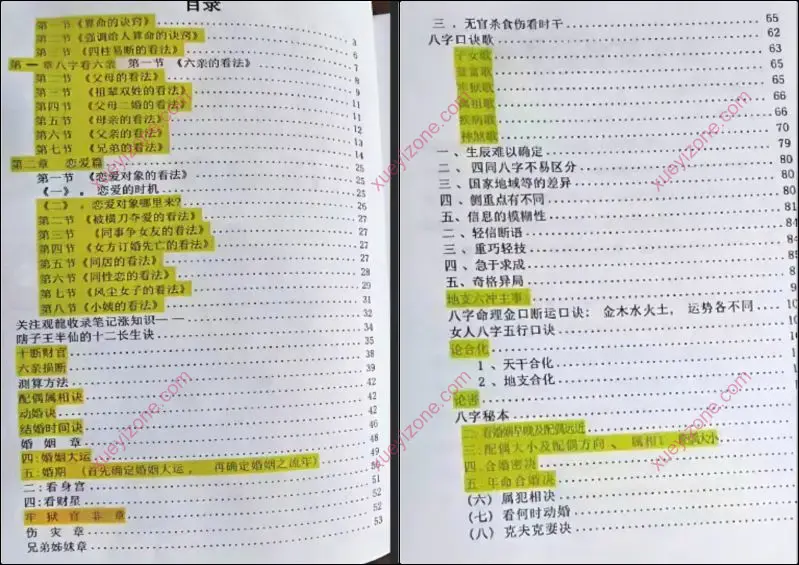 目录
第一节《算命的诀窍》
第二节《强调给人算命的诀窍》 3
第一节《四柱易断的看法》 6
第一章八字看六亲 第一节《六亲的看法》 7
第二节《父母的看法》 8
第三节《祖辈双姓的看法》 9
第四节《父母二婚的看法》 11
第五节《母亲的看法》 11
第六节《父亲的看法》 12
第七节《兄弟的看法》 13
第二章 恋爱篇 14
第一节《恋爱对象的看法》 25
《一》。恋爱的时机 25
《二》。恋爱对象哪里来? 25
第二节《被横刀夺爱的看法》 26
第三节《同事争女友的看法》 27
第四节《女方订婚先亡的看法》 27
第五节《同居的看法》 27
第六节《同性恋的看法》 28
第七节《风尘女子的看法》 29
第八节《小姨的看法》 31
关注观龍收录笔记涨知识—— 32
瞎子王半仙的十二长生诀 34
十断财官 35
六亲损断 38
测算方法 39
配偶属相诀 42
动婚诀 42
结婚时间诀 42
婚姻章 46
四:婚姻大运 48
五:婚期(首先确定婚姻大运,再确定婚姻之流年) 49
二:看身宫 50
四:看财星 51
牢狱官非章 52
伤灾章 52
兄弟姊妹章 53
三.无官杀食伤看时干 65
八字口诀歌 62
子女歌 63
富歌 65
牢狱歌 65
离祖歌 66
疾病歌 66
神煞歌 70
一、生辰难以确定 79
二、四同八字不易区分 80
三、国家地域等的差异 80
四、侧重点有不同 80
五、信息的模糊性 81
二、轻信断语 84
三、重巧轻技 84
四、急于求成 85
五、奇格异局
地支六冲主事
八字命理金口断运口诀:金木水火土,运势各不同
女人八字五行口诀
论合化
1、天干合化
2、地支合化
论害
八字秘本
二:看婚姻早晚及配偶远近
三:配偶大小及配偶方向、属相
四:合婚密决
五:年命合婚决
(六)属犯相决
(七)看何时动婚
(八)克夫克妻决
xueyizone.com
xueyizone.com
xueyizone.com
xueyizone.com